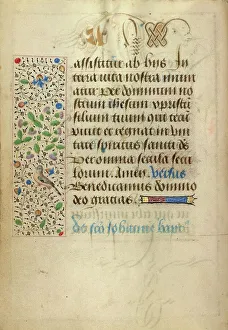 assistitur ab hijs In
terra vita nostra muni
atur Per dominum no
strum ihesum fi
lium tuum qui tecum
viuit et regnat in vni
tate spiritus sancti de
Per omnia secula secu
lorum. Amen. Versus
Benedicamus domino
deo gracias.
De sco Iohanne bapt